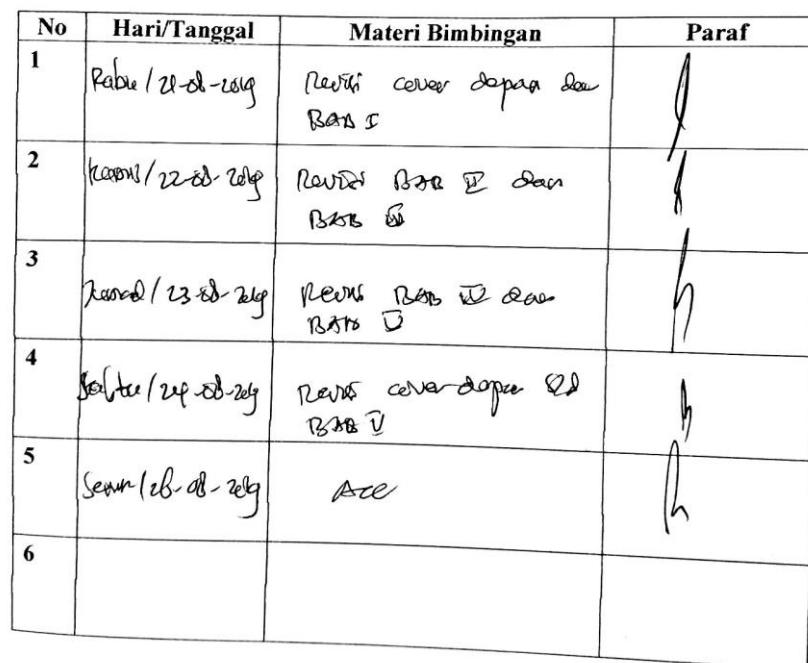 No Hari/Tanggal Materi Bimbingan Paraf
1
Rabu / 21-08-2019 Revisi cover depan dan
BAB I
2
Kamis / 22-08-2019 Revisi BAB II dan
BAB III
3
Jumat / 23-08-2019 Revisi BAB IV dan
BAB V
4
Sabtu / 24-08-2019 Revisi cover depan sd
BAB V
5
Senin / 26-08-2019 Acc
6